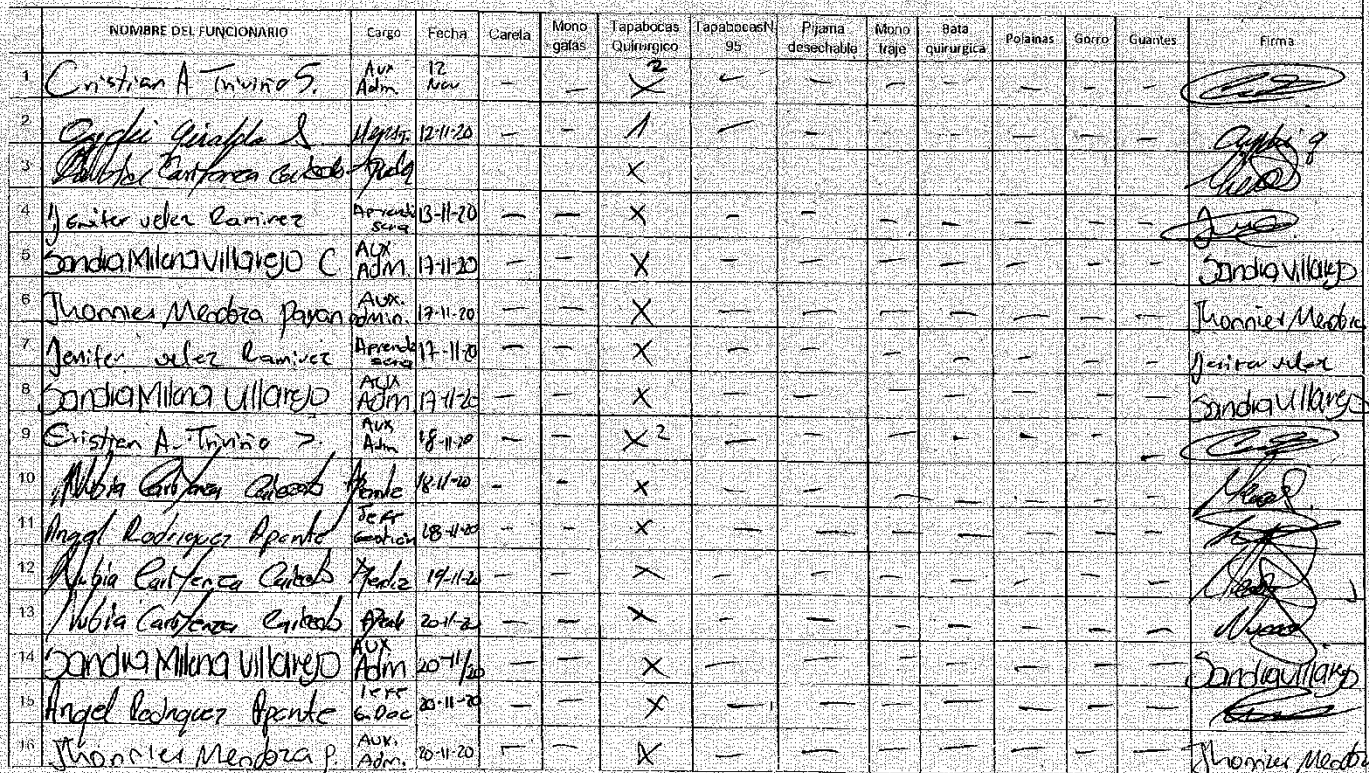 NOMBRE DEL FUNCIONARIO Cargo Fecha Careta Mono gafas Tapabocas Quirurgico TapabocasN 95 Pijama desechable Mono traje Bata quirurgica Polainas Gorro Guantes Firma
1 Cristian A Triviño S. Aux Adm. 12 Nov — — X 2 — — — — — — —
2 Giraldo 12-11-20 — — 1 — — — — — — —
3 X
4 Jenifer velez Ramirez Aprendi sena 13-11-20 — — X — — — — — — —
5 Sandra Milena Villarejo C. Aux Adm. 17-11-20 — — X — — — — — — — Sandra Villarejo
6 Jhonnier Mendoza Payan Aux. Admin. 17-11-20 — — X — — — — — — — Jhonnier Mendoza
7 Jenifer velez Ramirez Aprendi sena 17-11-20 — — X — — — — — — — Jenifer velez
8 Sandra Milena Villarejo Aux Adm 17-11-20 — — X — — — — — — — Sandra Villarejo
9 Cristian A. Triviño S. Aux Adm 18-11-20 — — X 2 — — — — — — —
10 Nubia Caicedo 18-11-20 — — X — — — — — — —
11 Angel Rodriguez Aponte Jefe Gestion 18-11-20 — — X — — — — — — —
12 Nubia Caicedo 19-11-20 — — X — — — — — — —
13 Nubia Caicedo 20-11-20 — — X — — — — — — —
14 Sandra Milena Villarejo Aux Adm 20-11/20 — — X — — — — — — — Sandra Villarejo
15 Angel Rodriguez Aponte Jefe G. Doc 20-11-20 — — X — — — — — — —
16 Jhonnier Mendoza P. Aux. Adm. 20-11-20 — — X — — — — — — — Jhonnier Mendoza